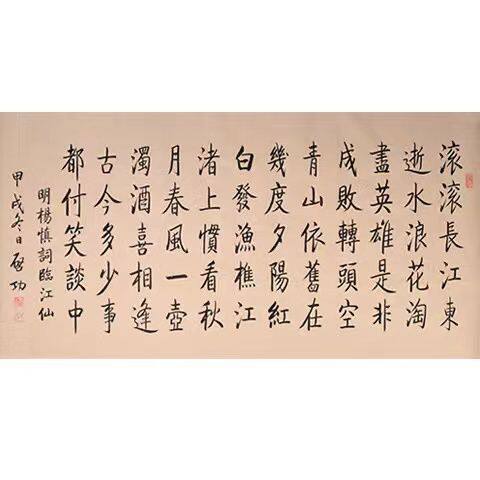 滚滚長江東
逝水浪花淘
盡英雄是非
成敗轉頭空
青山依舊在
幾度夕陽紅
白發漁樵江
渚上慣看秋
月春風一壺
濁酒喜相逢
古今多少事
都付笑談中
明楊慎詞臨江仙
甲戌冬日啓功